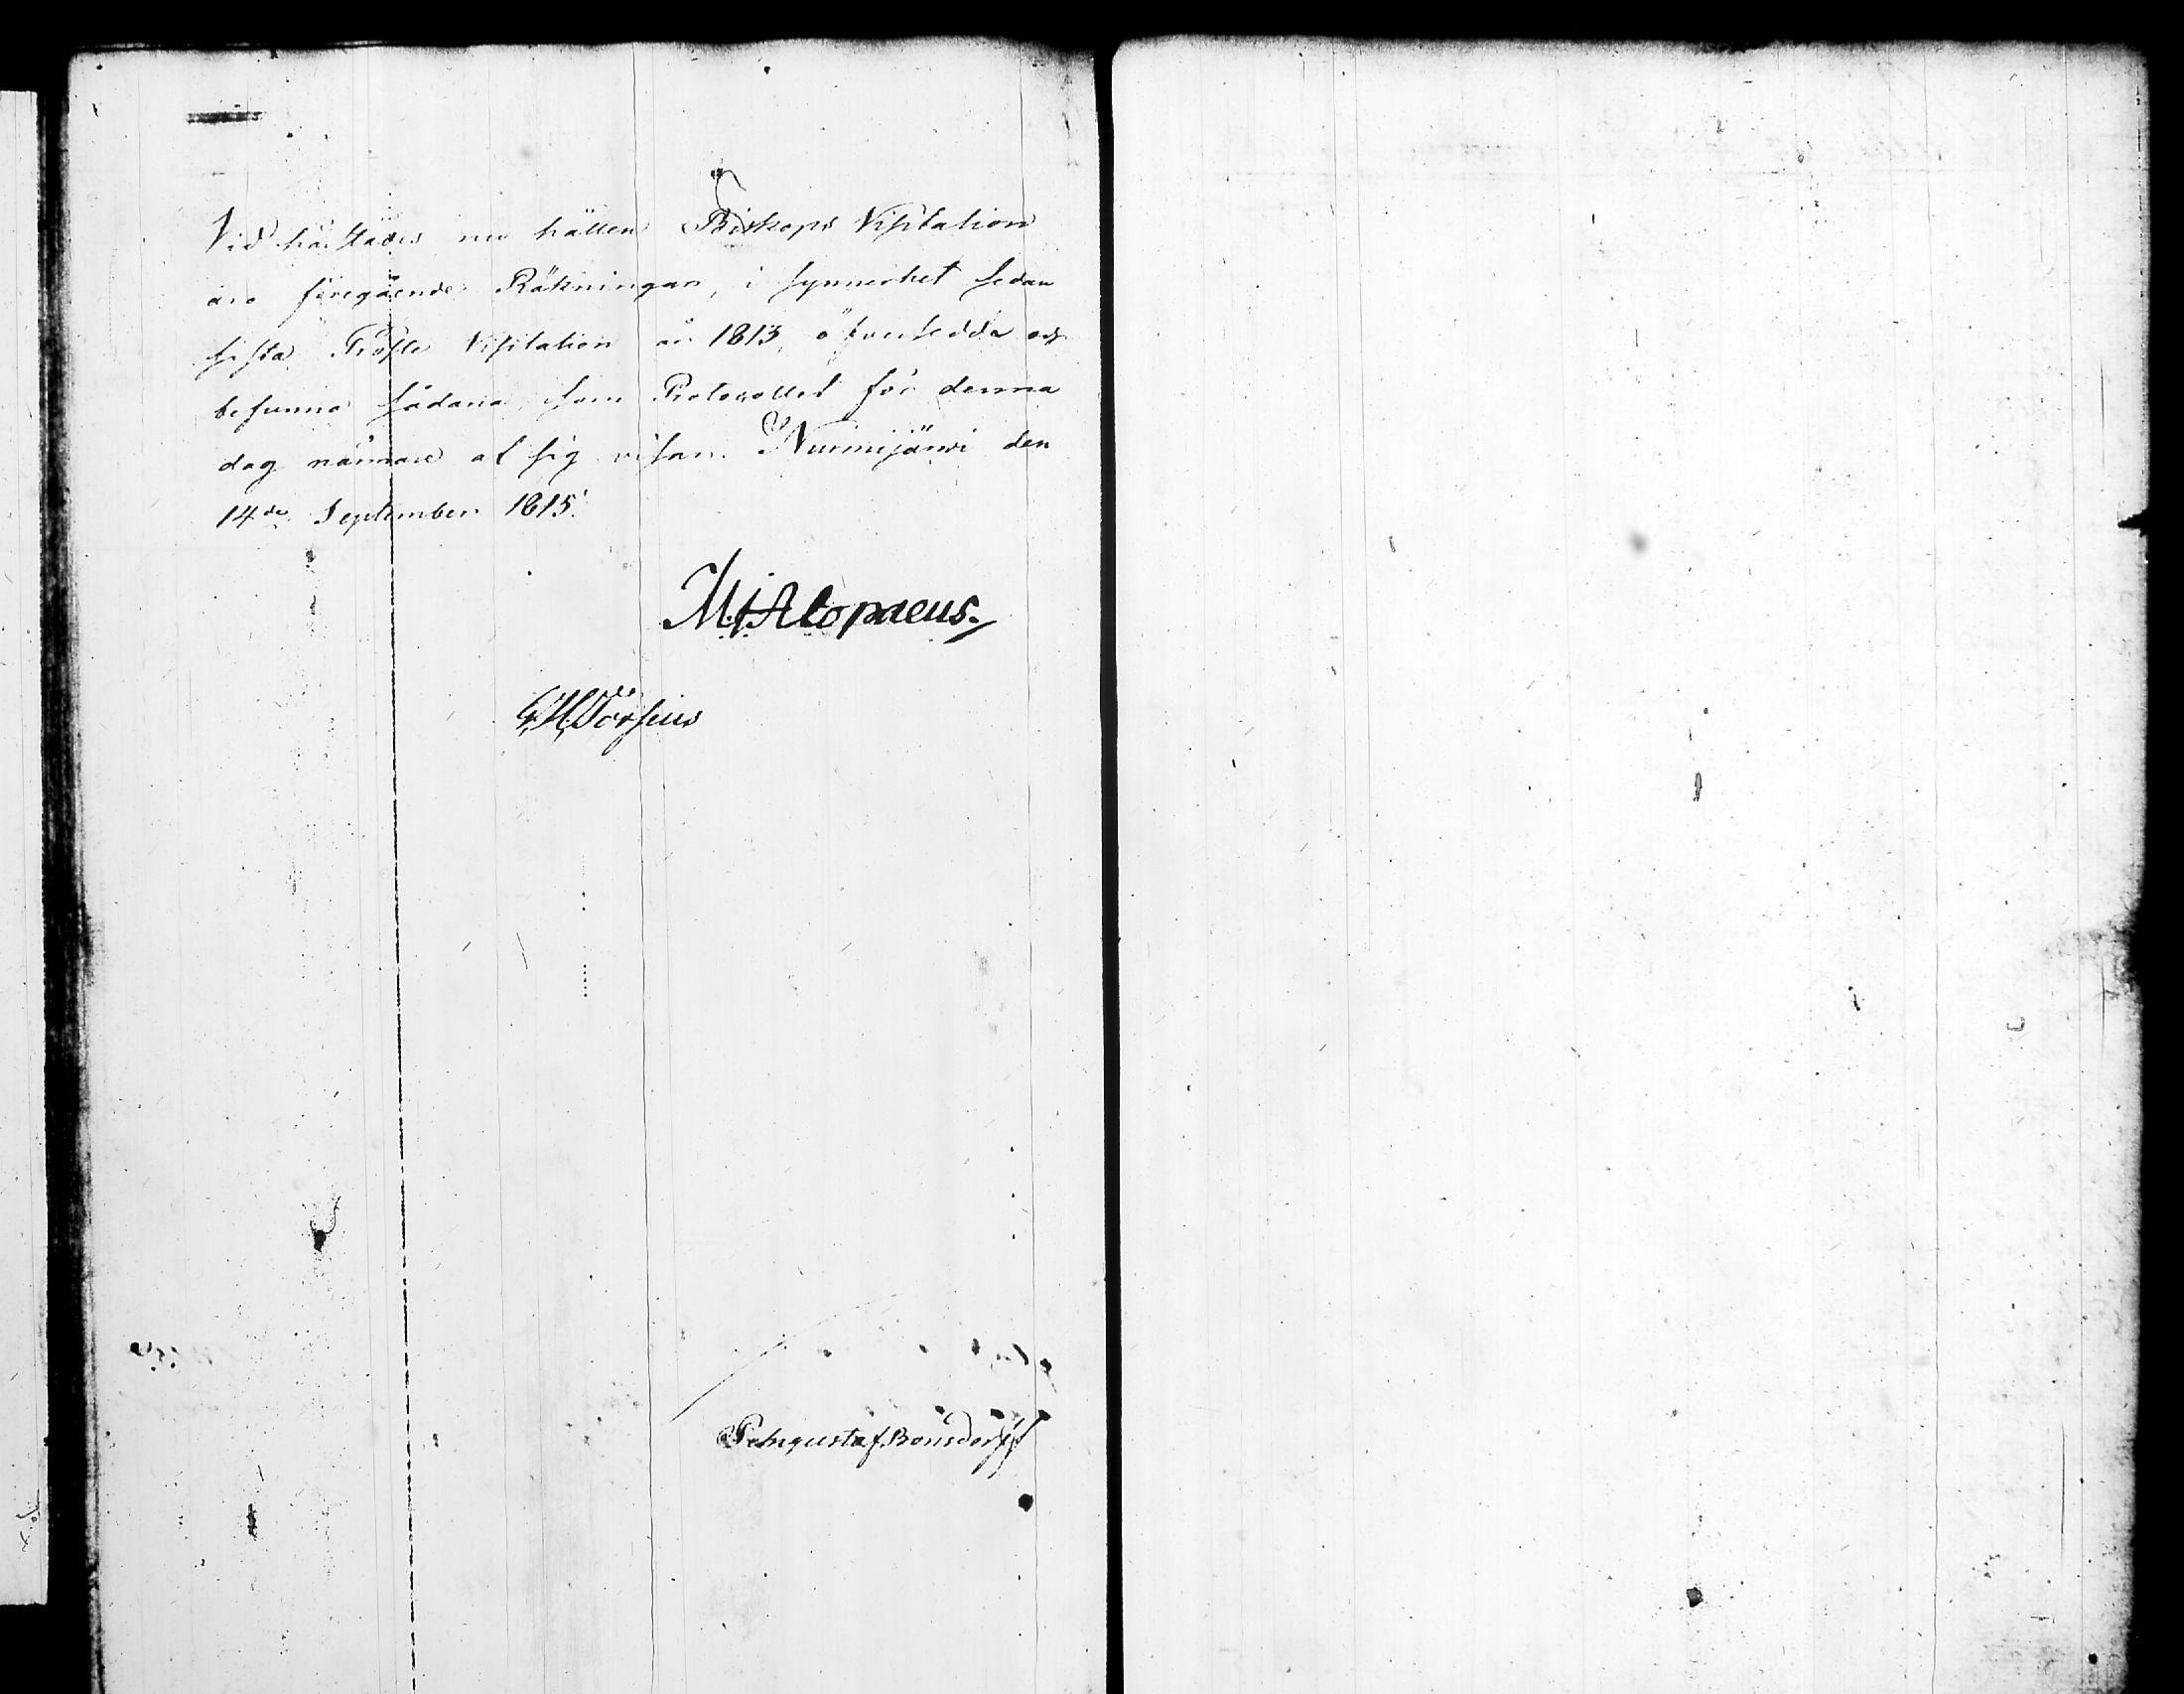 Vid härstädes nu hållen Biskops Visitation
äro föregående Räkningar, i synnerhet sedan
sista Prosts Visitation år 1813, öfversedda och
befunna sådana, som Protocollet för denna
dag närmare af sig visar. Nurmijärvi den
14de September 1815.
M. J. Alopaeus.
G. H. Forsius
Gustaf Bonsdorff